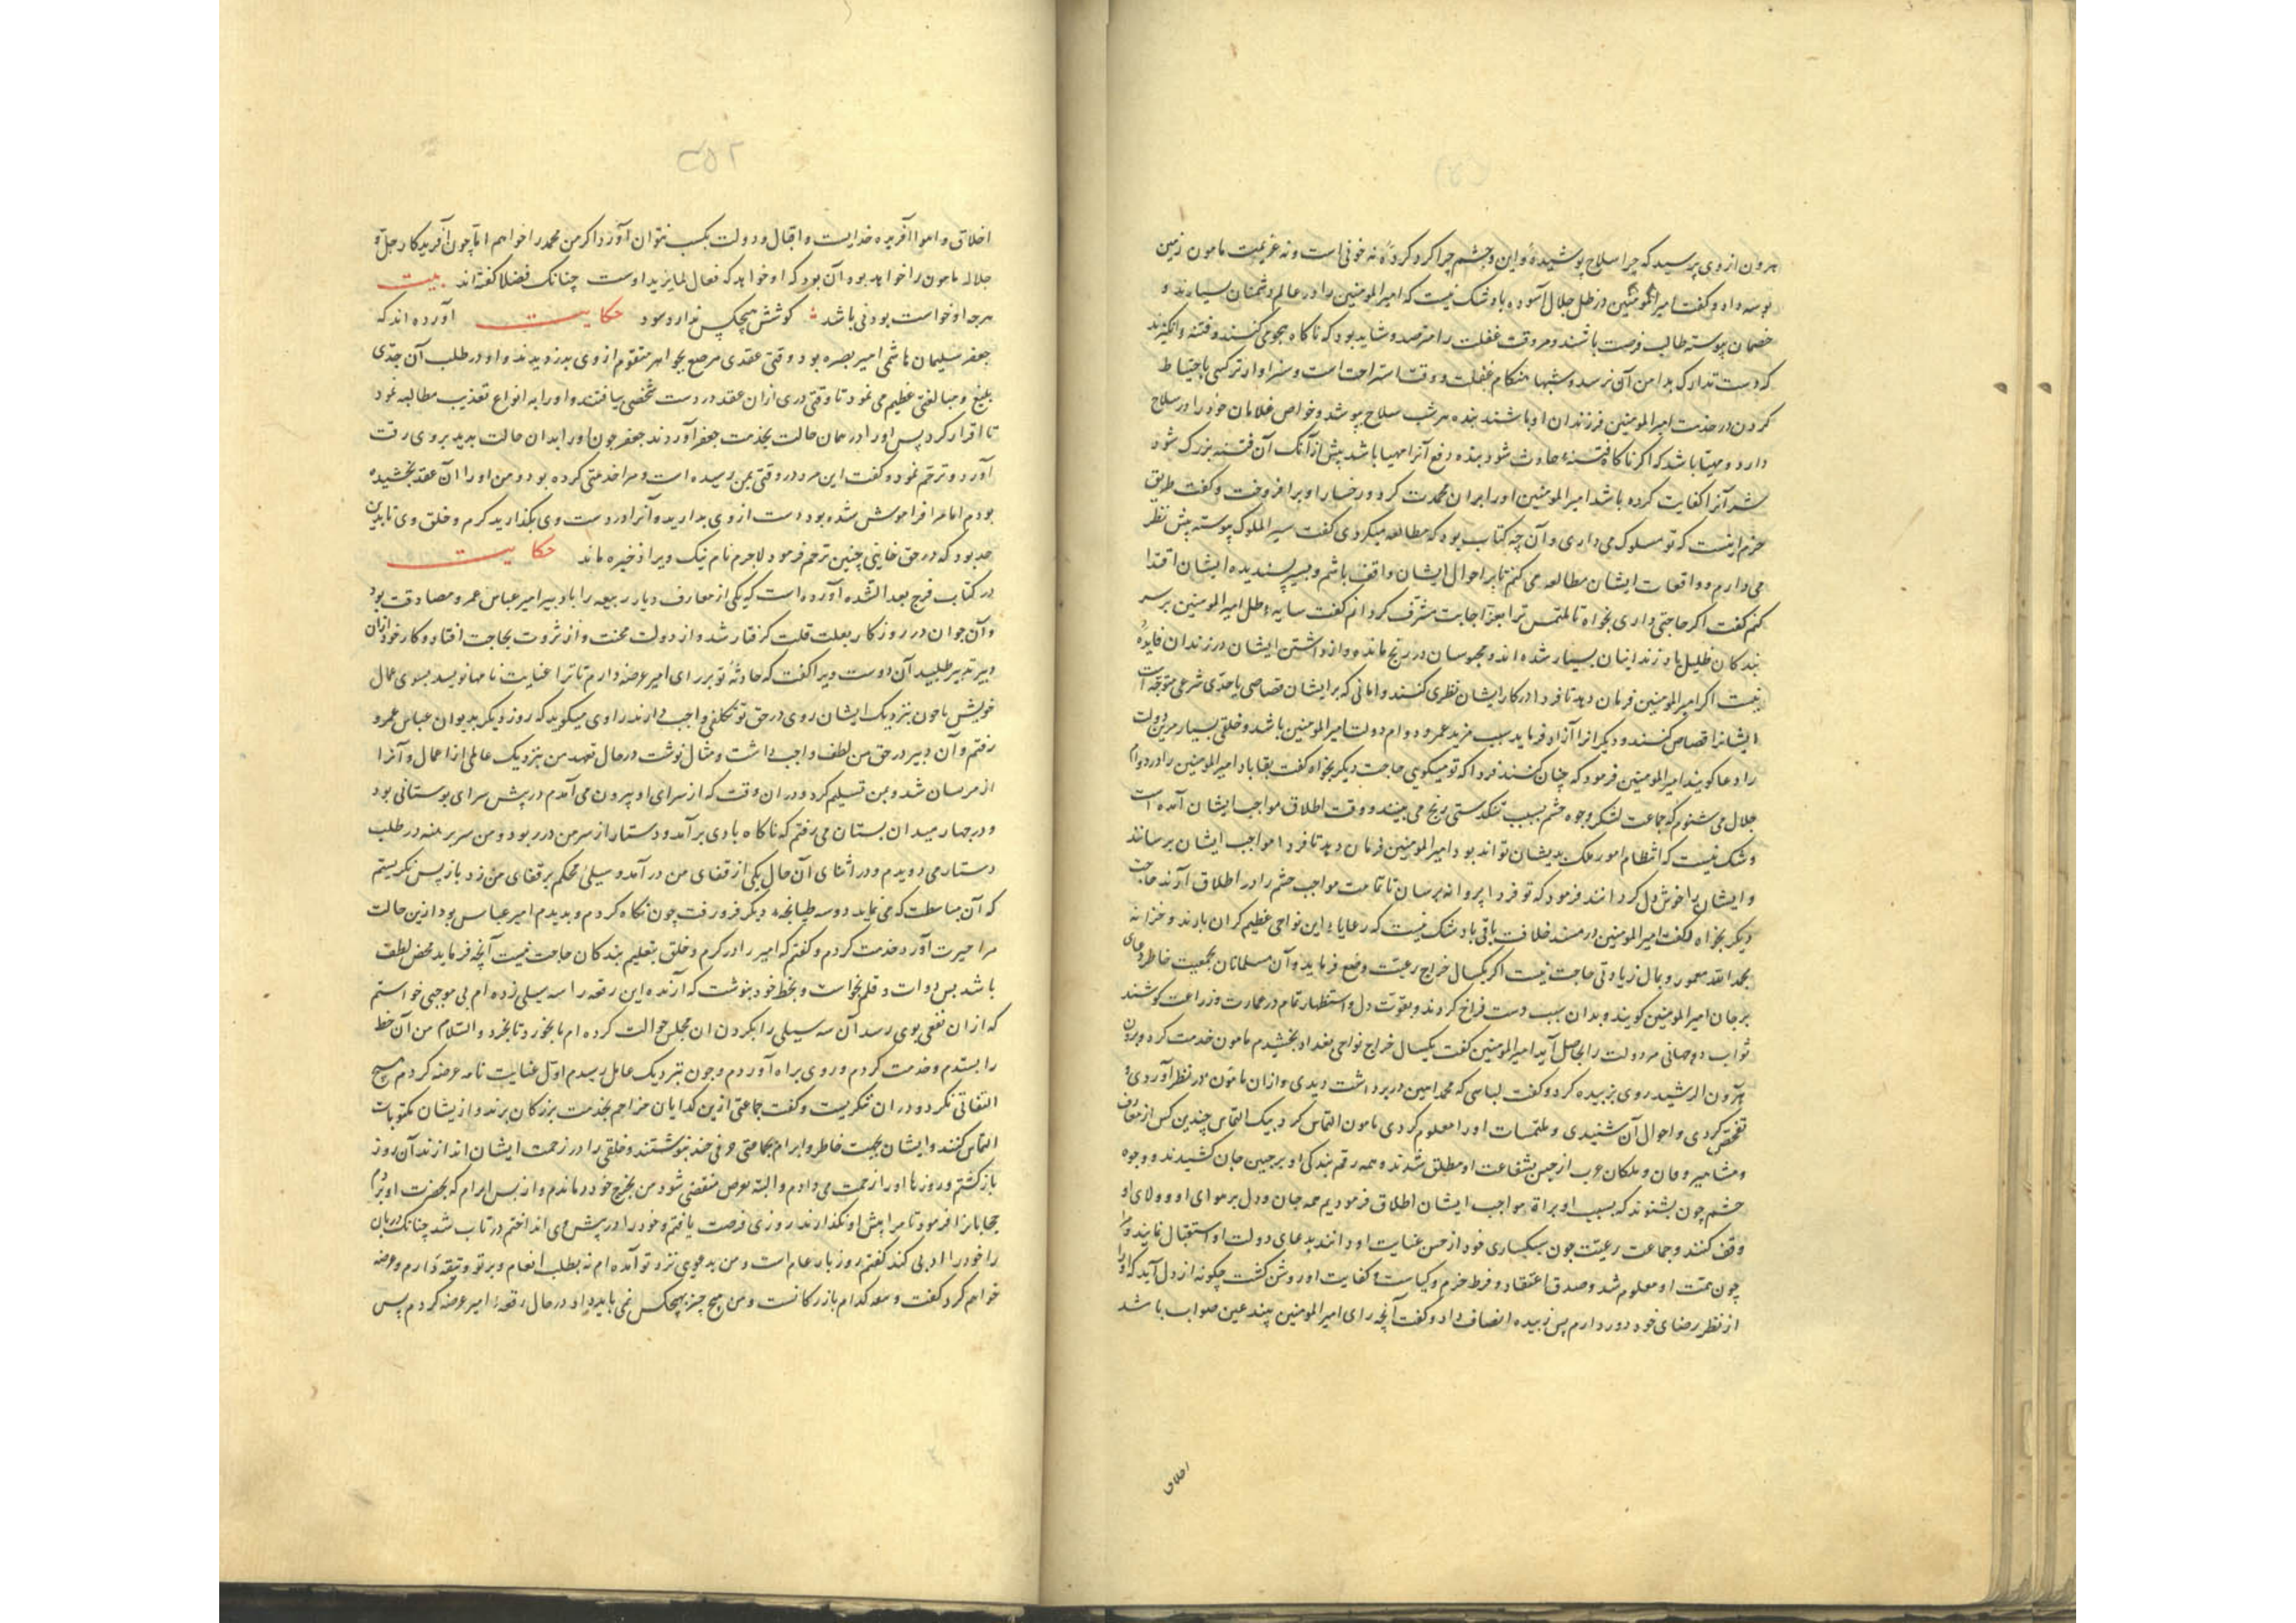 هرون از وی پرسید که چرا سلاح پوشیدهٔ و این و چشم چرا گرد کردهٔ نه خوفی است و نه عزیمت مامون زمین
بوسه داد و گفت امیرالمومنین در ظل جلال آسوده باد و شک نیست که امیرالمومنین را در عالم دشمنان بسیارند و
خصمان پیوسته طالب فرصت باشند و وقت غفلت را مترصد و شاید بود که ناکاه هجومی کنند و فتنه انکیزند
که دست تدارک بدامن آن نرسد و شبها هنکام غفلت و وقت استراحت است و سزاوارتر کسی باحتیاط
کردن در خدمت امیرالمومنین فرزندان او باشند بنده هر شب سلاح پوشد و خواص غلامان خود را در سلاح
دارد و مهیا باشد که اکر ناکاه فتنهٔ حادث شود بنده دفع آنرا مهیا باشد پیش از آنک آن فتنه بزرک شود
شر آنرا کفایت کرده باشد امیرالمومنین اورا بران محمدت کرد و رخسار او برافروخت و گفت طریق
حزم اینست که تو مسلوک می داری و آن چه کتاب بود که مطالعه میکردی گفت سیرالملوک پیوسته پیش نظر
می دارم و واقعات ایشان مطالعه می کنم تا بر احوال ایشان واقف باشم و بسیر پسندیده ایشان اقتدا
کنم گفت اکر حاجتی داری بخواه تا ملتمس ترا بعز اجابت مشرف کردانم گفت سایه ظل امیرالمومنین بر سر
بندکان ظلیل باد زندانیان بسیار شده اند و محبوسان در رنج مانده و از داشتن ایشان در زندان فایدهٔ
نیست اکر امیرالمومنین فرمان دهد تا فردا در کار ایشان نظری کنند و آنانی که بر ایشان قصاصی یا حدی شرعی متوجه است
ایشانرا قصاص کنند و دیکرانرا آزاد فرماید سبب مزید عمر و دوام دولت امیرالمومنین باشد و خلقی بسیار مرین دولت
را دعا کویند امیرالمومنین فرمود که چنان کنند فردا که تو میکویی حاجت دیکر بخواه گفت بقا باد امیرالمومنین را در دوام
جلال می شنوم که جماعت لشکر و وجوه حشم بسبب تنکدستی رنج می بینند و وقت اطلاق مواجب ایشان آمده است
و شک نیست که انتظام امور ملک بدیشان تواند بود امیرالمومنین فرمان دهد تا فردا مواجب ایشان برسانند
و ایشان را خوش دل کردانند فرمود که تو فردا پروانه برسان تا تمامت مواجب حشم را در اطلاق آرند حاجت
دیکر بخواه گفت امیرالمومنین در مسند خلافت باقی باد شک نیست که رعایای این نواحی عظیم کران بارند و خزانه
بحمد الله معمور و بمال زیادتی حاجت نیست اکر یکسال خراج رعیت وضع فرماید و آن مسلمانان بجمعیت خاطر دعای
بر جان امیرالمومنین کویند و بدان سبب دست فراخ کردند و بقوت دل و استظهار تمام در عمارت و زراعت کوشند
ثواب دوجهانی مر دولت را بحاصل آید امیرالمومنین گفت یکسال خراج نواحی بغداد بخشیدم مامون خدمت کرد و برون
هرون الرشید روی بزبیده کرد و گفت لباسی که محمد امین در بر داشت دیدی و از ان مامون در نظر آوردی و
تفحص کردی و احوال آن شنیدی و ملتمسات اورا معلوم کردی مامون التماس کرد بیک التماس چندین کس از معارف
و مشاهیر و فان و ملکان عرب از حبس بشفاعت او مطلق شدند و همه رقم بندکی او بر جبین جان کشیدند و وجوه
حشم چون بشنوند که بسبب او براة مواجب ایشان اطلاق فرمودیم همه جان و دل بر هوای او و ولای او
وقف کنند و جماعت رعیت چون سبکباری خود از حسن عنایت او دانند بدعای دولت او استقبال نمایند و مرا
چون همت او معلوم شد و صدق اعتقاد و فرط حزم و کیاست و کفایت او روشن کشت چکونه از دل آید که اورا
از نظر رضای خود دور دارم پس زبیده انصاف داد و گفت آنچه رای امیرالمومنین بیند عین صواب باشد
اخلاق
۲۵۲
اخلاق و اهوا آفریده خدایست و اقبال و دولت بکسب نتوان آورد اکر من محمد را خواهم اما چون آفریدکار جل و
جلاله مامون را خواهد بود آن بود که او خواهد که فعال لما یرید اوست چنانک فضلا گفته اند بیت
هرچه او خواست بودنی باشد ؛ کوشش هیچکس ندارد سود حکایت آورده اند که
جعفر سلیمان هاشمی امیر بصره بود وقتی عقدی مرصع بجواهر متقوم از وی بدزدیدند و او در طلب آن جدی
بلیغ و مبالغتی عظیم می نمود تا وقتی دری از ان عقد در دست شخصی بیافتند و اورا به انواع تعذیب مطالبه نمود
تا اقرار کرد پس اورا در همان حالت بخدمت جعفر آوردند جعفر چون اورا بدان حالت بدید بر وی رقت
آورد و ترحم نمود و گفت این مرد در وقتی بمن رسیده است و مرا خدمتی کرده بود و من اورا آن عقد بخشیده
بودم اما مرا فراموش شده بود دست از وی بدارید و آنرا در دست وی بکذارید کرم و خلق وی تا بدین
حد بود که در حق خاینی چنین ترحم فرمود لاجرم نام نیک ویرا ذخیره ماند حکایت
در کتاب فرج بعد الشده آورده است که یکی از معارف دیار ربیعه را با دبیر امیر عباس عمرو مصادقت بود
و آن جوان در روزکار بعلت قلت کرفتار شد و از دولت محنت و از ثروت بحاجت افتاد و کار خود از ان
دبیر تدبیر طلبید آن دوست ویرا گفت که حادثهٔ تو بر رای امیر عرضه دارم تا ترا عنایت نامها نویسد بسوی عمال
خویش تا چون بنزدیک ایشان روی در حق تو تکلفی واجب دارند راوی میکوید که روز دیکر بدیوان عباس عمرو
رفتم و آن دبیر در حق من لطف واجب داشت و مثال نوشت در حال تعهد من بنزدیک عاملی از اعمال و آنرا
از مرسان شد و بمن تسلیم کرد و در ان وقت که از سرای او بیرون می آمدم در پیش سرای بوستانی بود
و در چهار میدان بستان می رفتم که ناکاه بادی برآمد و دستار از سر من در ربود و من سر برهنه در طلب
دستار می دویدم و در اثنای آن حال یکی از قفای من درآمد و سیلی محکم بر قفای من زد باز پس نکریستم
که آن مباسطت که می نماید دو سه طپانچه دیکر فرو رفت چون نکاه کردم و بدیدم امیر عباس بود ازین حالت
مرا حیرت آورد خدمت کردم و گفتم که امیر را در کرم و خلق بتعلیم بندکان حاجت نیست آنچه فرماید محض لطف
باشد پس دوات و قلم بخواست و بخط خود بنوشت که آرنده این رقعه را سه سیلی زده ام بی موجبی خواستم
که از ان نفعی بوی رسد آن سه سیلی را بکردن ان مجلس حوالت کرده ام تا بخورد تا بخرد و السلام من آن خط
را بستدم و خدمت کردم و روی براه آوردم و چون بنزدیک عامل رسیدم اول عنایت نامه عرضه کردم هیچ
التفاتی نکرد و در ان ننکریست و گفت جماعتی ازین کدایان مزاحم بخدمت بزرکان برند و از یشان مکتوبات
التماس کنند و ایشان بجهت خاطر و ابرام بحاجتی حرفی چند بنوشتند و خلقی را در زحمت ایشان اندازند آن روز
بازکشتم و روزها اورا زحمت می دادم و البته بعوض منقضی نشود من بخرج خود درماندم و از بس ابرام که بحضرت او بردم
حجابانرا فرمود تا مرا پیش او نکذارند روزی فرصت یافتم و خود را در پیش وی انداختم در تاب شد چنانک دربان
را خود را ادبی کند گفتم روز بار عام است و من بدعوی نزد تو آمده ام نه بطلب انعام و بر تو وثیقه دارم و عرضه
خواهم کرد گفت و بعد کدام بازرکانست و من هیچ چیز بهیچکس نمی باید داد در حال رقعه امیر عرضه کردم پس